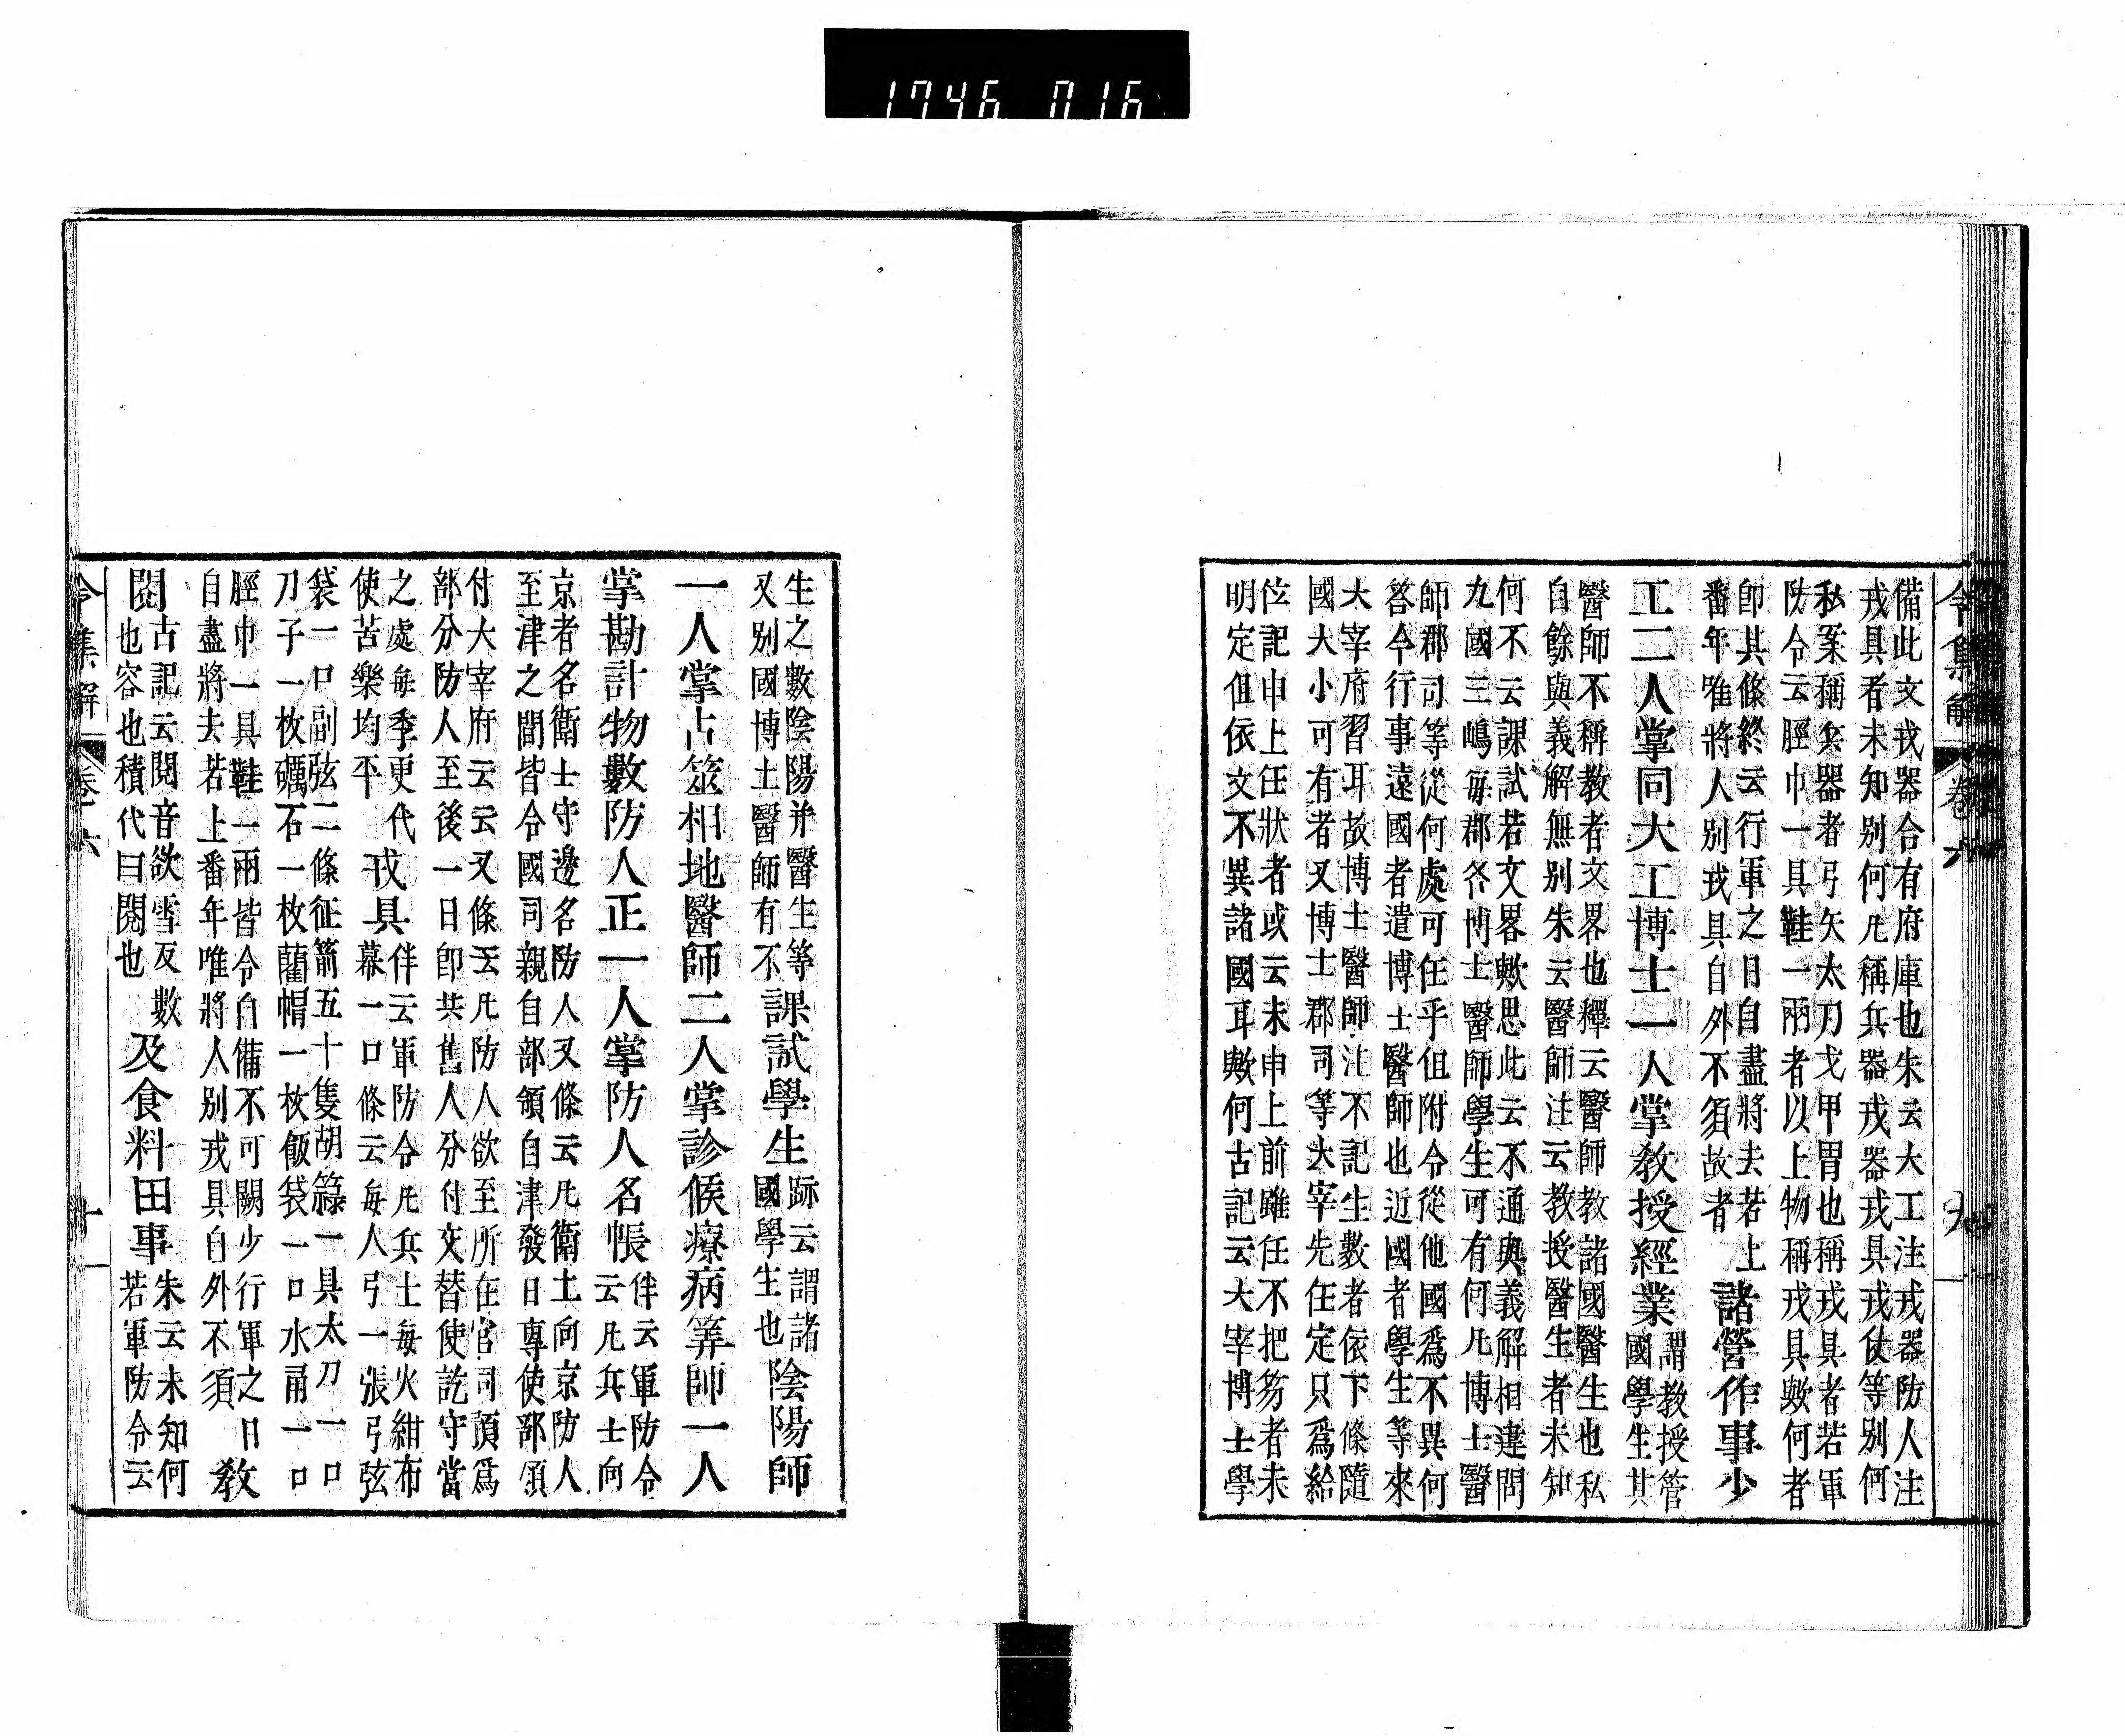 1746 016
令集解 卷六 九
備此文戎器合有府庫也朱云大工注戎器防人注
戎具者未知別何凡稱兵器戎器戎具戎仗等別何
私案稱兵器者弓矢太刀戈甲冑也稱戎具者若軍
防令云脛巾一具鞋一兩者以上物稱戎具歟何者
卽其條終云行軍之日自盡將去若上
番年唯將人別戎具自外不須故者
諸營作事少
工二人掌同大工博士一人掌敎授經業
謂教授管
國學生其
醫師不稱教者文畧也釋云醫師教諸國醫生也私
自餘與義解無別朱云醫師注云教授醫生者未知
何不云課試若文畧歟思此云不通與義解相違問
九國三嶋每郡各博士醫師學生可有何凡博士醫
師郡司等從何處可任乎但附令從他國爲不異何
答令行事遠國者遣博士醫師也近國者學生等來
大宰府習耳故博士醫師注不記生數者依下條隨
國大小可有者又博士郡司等大宰先任定只爲給
位記申上任狀者或云未申上前雖任不把笏者未
明定但依文不異諸國耳歟何古記云大宰博士學
生之數陰陽并醫生等
又別國博士醫師有不
課試學生
跡云謂諸
國學生也
陰陽師
一人掌占筮相地醫師二人掌診候療病筭師一人
掌勘計物數防人正一人掌防人名帳
伴云軍防令
云凡兵士向
京者名衛士守邊名防人又條云凡衛士向京防人
至津之間皆令國司親自部領自津發日專使部領
付大宰府云云又條云凡防人欲至所在官司預爲
部分防人至後一日卽共舊人分付交替使訖守當
之處每季更代
使苦樂均平
戎具
伴云軍防令凡兵士每火紺布
幕一口條云每人弓一張弓弦
袋一口副弦二條征箭五十隻胡籙一具太刀一口
刀子一枚礪石一枚藺帽一枚飯袋一口水甬一口
脛巾一具鞋一兩皆令自備不可闕少行軍之日
自盡將去若上番年唯將人別戎具自外不須
敎
閲
古記云閲音欲雪反數
也容也積代曰閲也
及食料田事
朱云未知何
若軍防令云
令集解 卷六 十